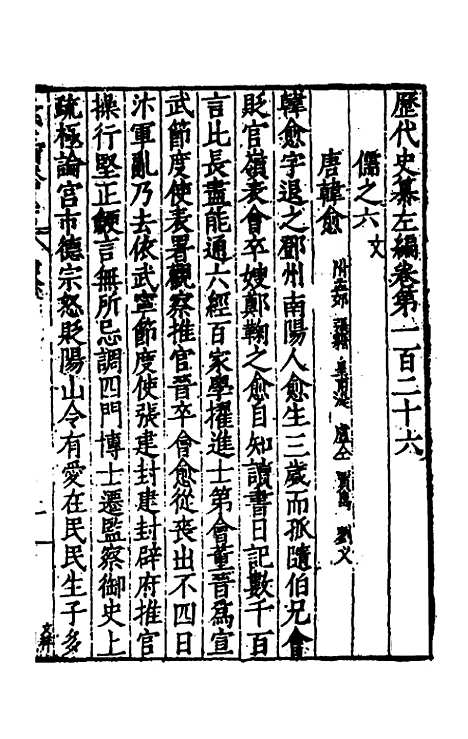 歷代史纂左編卷第一百二十六
儒之六 文
唐韓愈 附孟郊 張籍 皇甫湜 盧仝 賈島 劉乂
韓愈字退之鄧州南陽人愈生三歲而孤隨伯兄會
貶官嶺表會卒嫂鄭鞠之愈自知讀書日記數千百
言比長盡能通六經百家學擢進士第會董晉為宣
武節度使表署觀察推官晉卒會愈從喪出不四日
汴軍亂乃去依武寧節度使張建封建封辟府推官
操行堅正鯁言無所忌調四門博士遷監察御史上
疏極論宮市德宗怒貶陽山令有愛在民民生子多